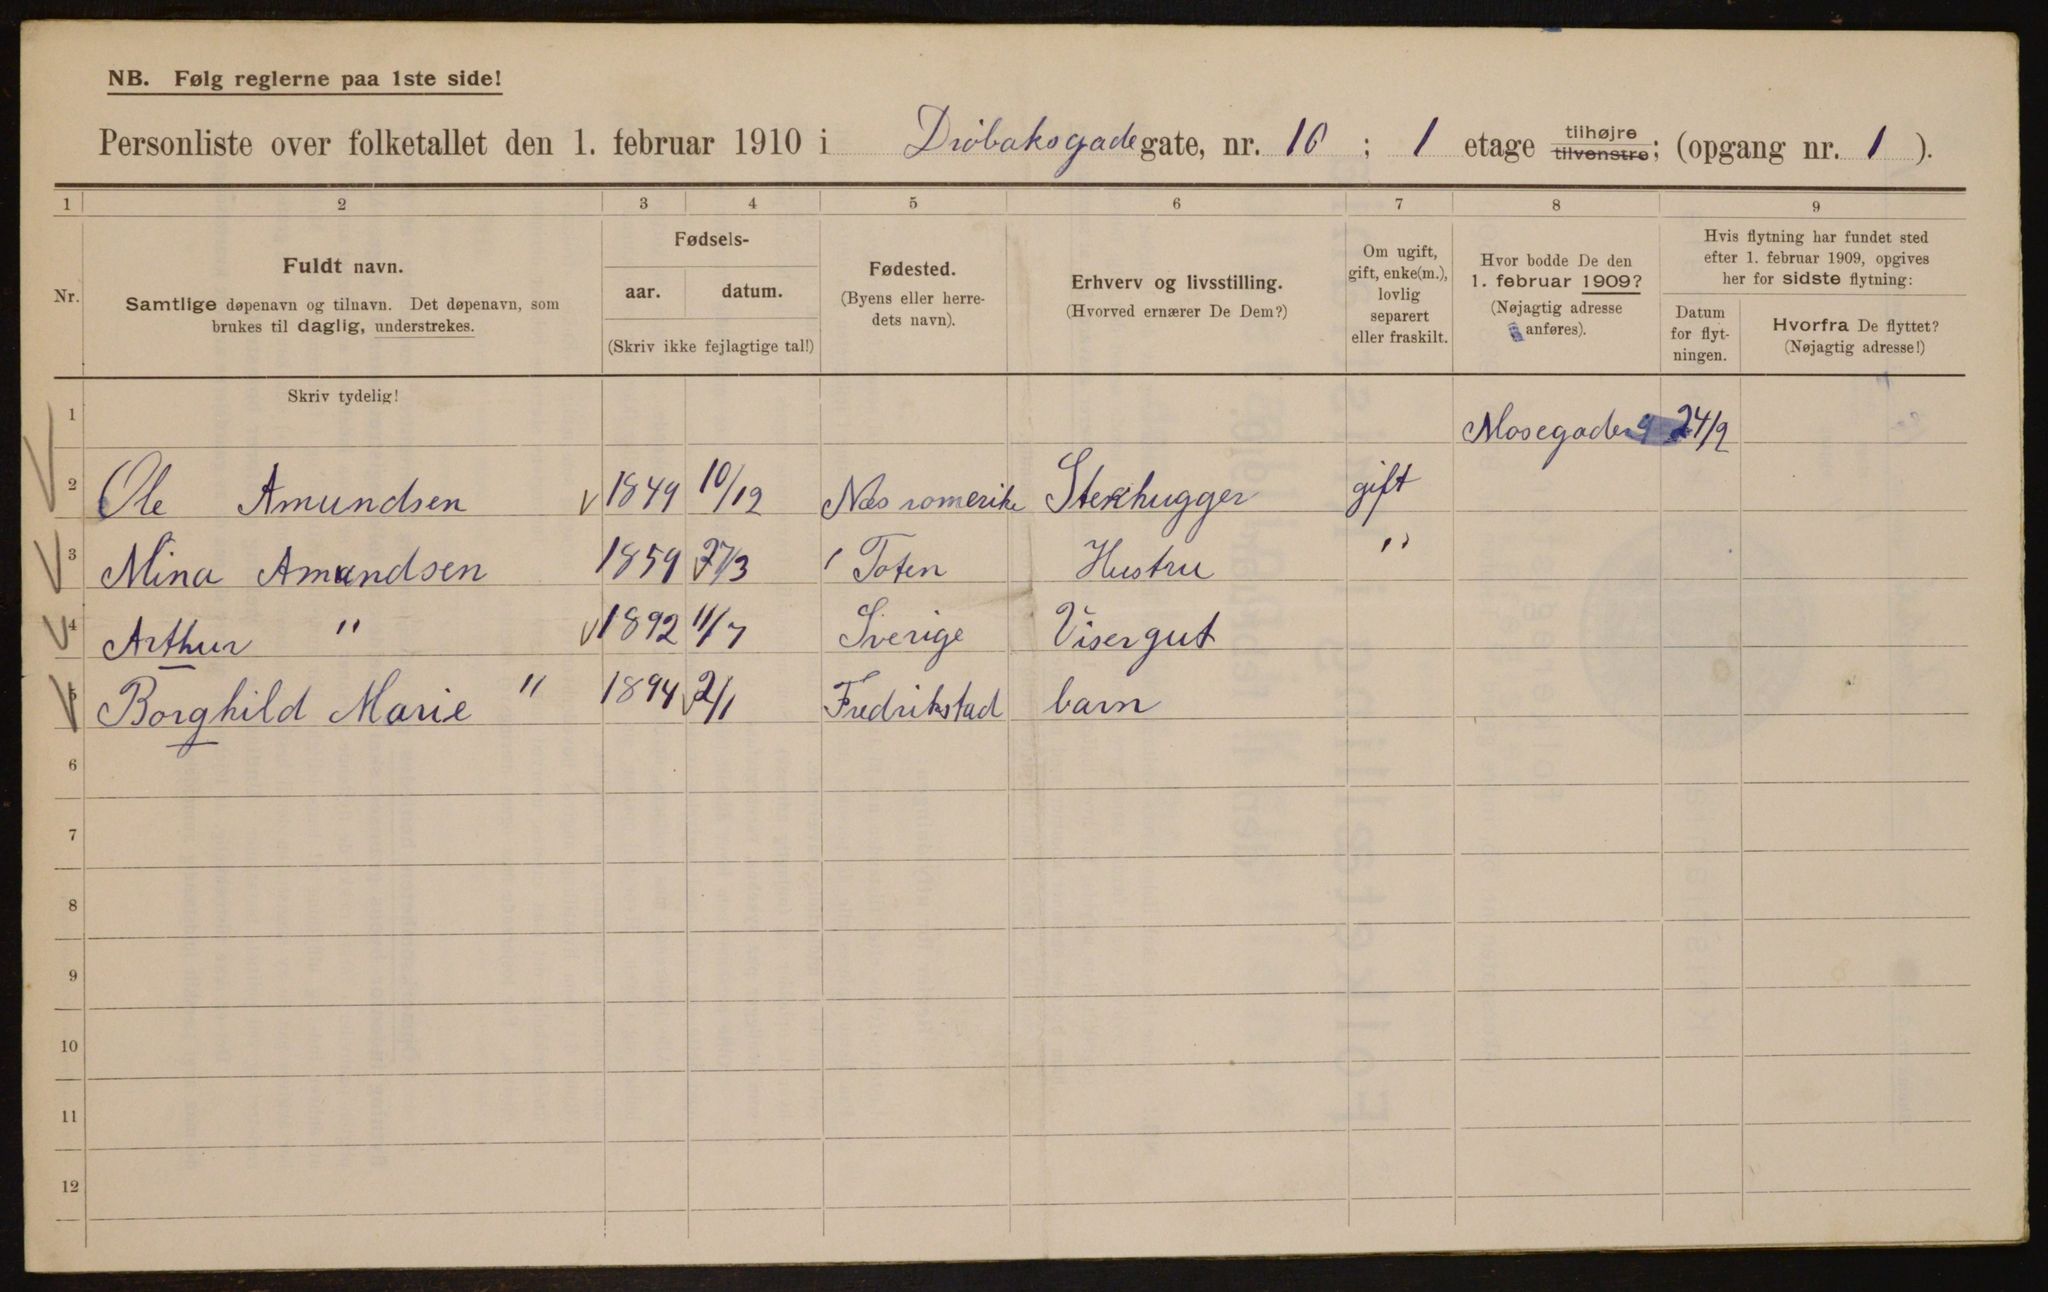 NB. Følg reglerne paa 1ste side!
Personliste over folketallet den 1. februar 1910 i Drøbaksgade gate, nr. 10 ; 1 etage tilhøjre tilvenstre; (opgang nr. 1 ).
1 2 3 4 5 6 7 8 9
Nr.
Fuldt navn.
Samtlige døpenavn og tilnavn. Det døpenavn, som
brukes til daglig, understrekes.
Fødsels-
aar. datum.
(Skriv ikke fejlagtige tal!)
Fødested.
(Byens eller herre-
dets navn).
Erhverv og livsstilling.
(Hvorved ernærer De Dem?)
Om ugift,
gift, enke(m.),
lovlig
separert
eller fraskilt.
Hvor bodde De den
1. februar 1909?
(Nøjagtig adresse
anføres).
Hvis flytning har fundet sted
efter 1. februar 1909, opgives
her for sidste flytning:
Datum
for flyt-
ningen.
Hvorfra De flyttet?
(Nøjagtig adresse!)
Skriv tydelig!
1 Mosegade 9 24/9
2 Ole Amundsen 1849 10/12 Næs romerike Stenhugger gift
3 Mina Amundsen 1859 27/3 Toten Hustru "
4 Arthur " 1892 11/7 Sverige Visergut
5 Borghild Marie " 1894 2/1 Fredrikstad barn
6
7
8
9
10
11
12